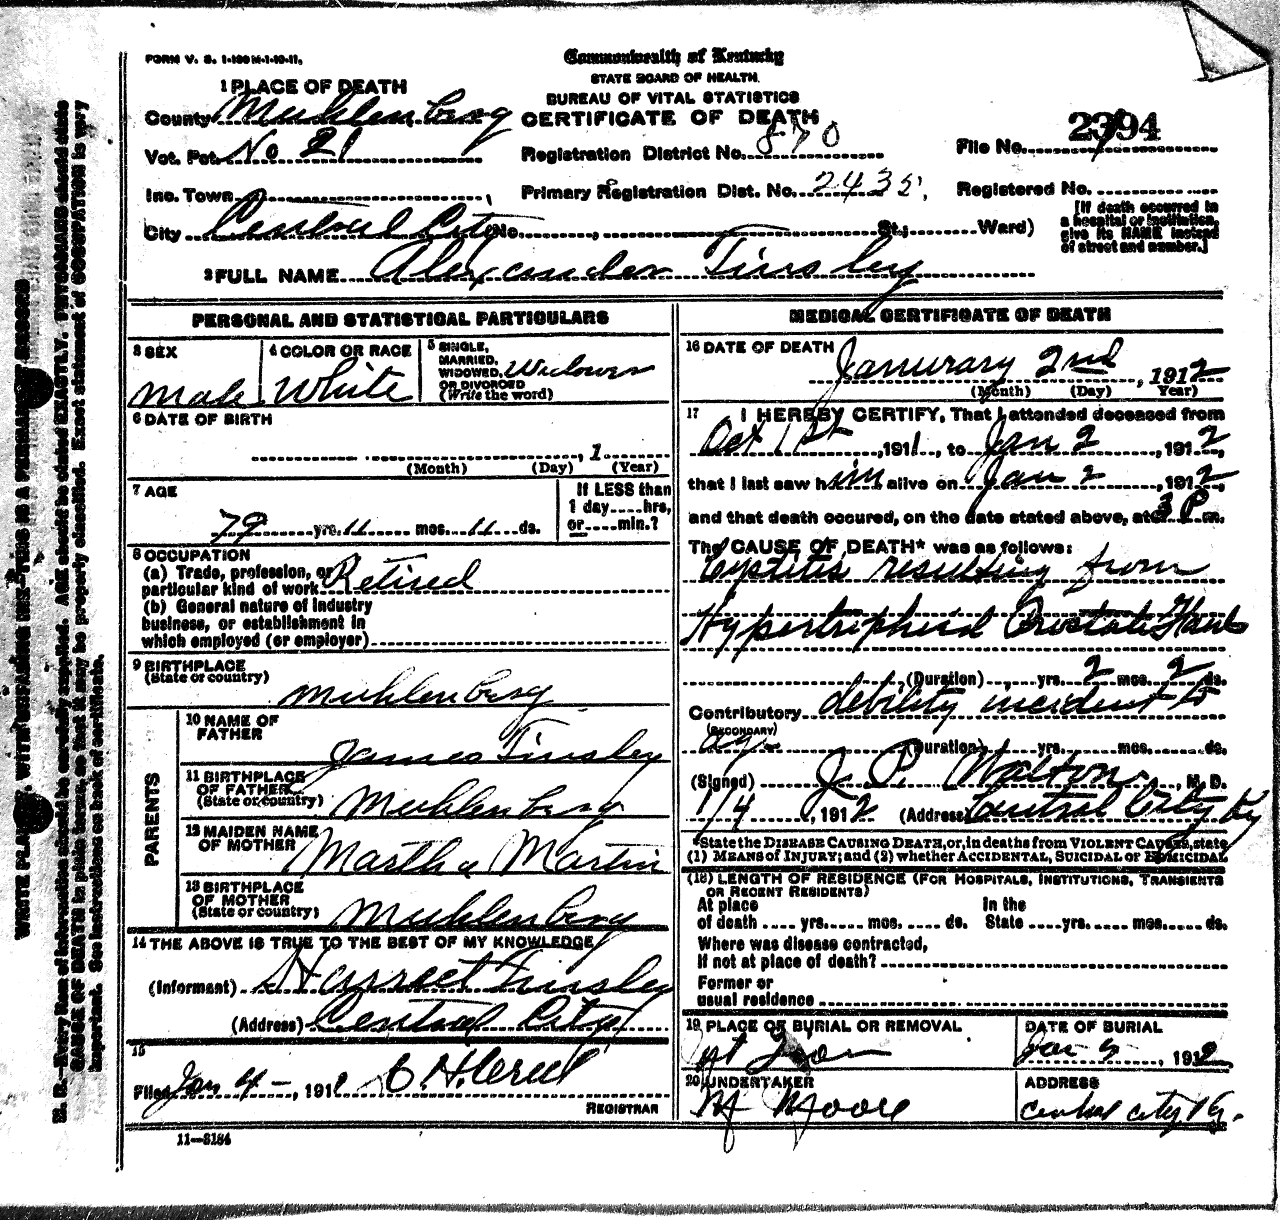 FORM V. S. 1-
Commonwealth of Kentucky
STATE BOARD OF HEALTH.
BUREAU OF VITAL STATISTICS
CERTIFICATE OF DEATH
1 PLACE OF DEATH
County Muhlenberg
Vot. Pct. No 21
Inc. Town
City Central City No. , St.; Ward)
Registration District No. 870
Primary Registration Dist. No. 2435
File No. 2394
Registered No.
[If death occurred in
a hospital or institution,
give its NAME instead
of street and number.]
2 FULL NAME Alexander Tinsley
PERSONAL AND STATISTICAL PARTICULARS
3 SEX
Male
4 COLOR OR RACE
White
5 SINGLE,
MARRIED,
WIDOWED, Widower
OR DIVORCED
(Write the word)
6 DATE OF BIRTH
, 1
(Month) (Day) (Year)
7 AGE
79 yrs. 11 mos. 11 ds.
If LESS than
1 day....hrs,
or....min.?
8 OCCUPATION
(a) Trade, profession, or
particular kind of work Retired
(b) General nature of industry
business, or establishment in
which employed (or employer)
9 BIRTHPLACE
(State or country)
Muhlenberg
PARENTS
10 NAME OF
FATHER
James Tinsley
11 BIRTHPLACE
OF FATHER
(State or country)
Muhlenberg
12 MAIDEN NAME
OF MOTHER
Martha Martin
13 BIRTHPLACE
OF MOTHER
(State or country)
Muhlenberg
14 THE ABOVE IS TRUE TO THE BEST OF MY KNOWLEDGE
(Informant) Harreet Tinsley
(Address) Central City
15
Filed Jan 4 - , 191 C. H.
REGISTRAR
11—3184
MEDICAL CERTIFICATE OF DEATH
16 DATE OF DEATH
Janurary 2nd , 1912
(Month) (Day) Year)
17 I HEREBY CERTIFY, That I attended deceased from
Oct 1st , 1911, to Jan 2 , 1912,
that I last saw him alive on Jan 2 , 1912,
and that death occured, on the date stated above, at 3 P m.
The CAUSE OF DEATH* was as follows:
Cystitis resulting from
Prostate
(Duration) yrs. 2 mos. 2 ds.
Contributory debility incident to
(SECONDARY)
age (Duration) yrs. mos. ds.
(Signed) J. P. Walton, M. D.
1/4 , 1912 (Address) Central City Ky
*State the DISEASE CAUSING DEATH, or, in deaths from VIOLENT CAUSES, state
(1) MEANS of INJURY; and (2) whether ACCIDENTAL, SUICIDAL or HOMICIDAL
(18) LENGTH OF RESIDENCE (FOR HOSPITALS, INSTITUTIONS, TRANSIENTS
OR RECENT RESIDENTS)
At place In the
of death .... yrs..... mos..... ds. State ....yrs..... mos..... ds.
Where was disease contracted,
If not at place of death?
Former or
usual residence
19 PLACE OF BURIAL OR REMOVAL
DATE OF BURIAL
Jan 5 , 1912
20 UNDERTAKER
Moore
ADDRESS
Central City Ky.
WRITE PLAINLY, WITH UNFADING INK—THIS IS A PERMANENT RECORD
N. B.—Every item of information should be carefully supplied. AGE should be stated EXACTLY. PHYSICIANS should state
CAUSE OF DEATH in plain terms, so that it may be properly classified. Exact statement of OCCUPATION is very
important. See instructions on back of certificate.